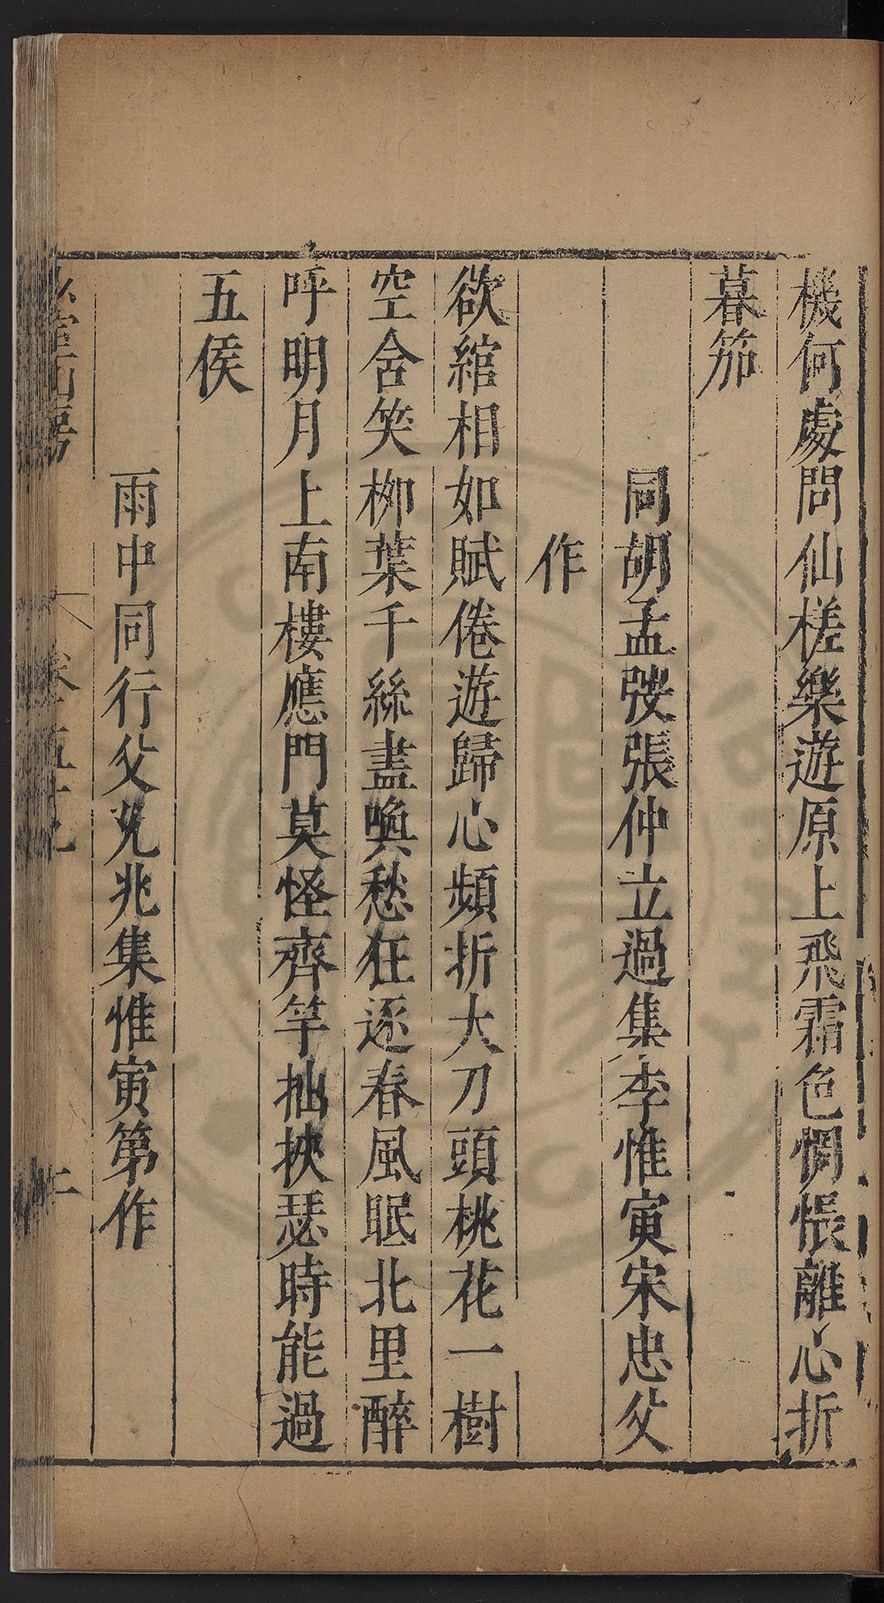 機何處問仙槎樂遊原上飛霜色惆悵離心折
暮笳
同胡孟弢張仲立過集李惟寅宋忠父
作
欲綰相如賦倦遊歸心頻折大刀頭桃花一樹
空含笑柳葉千絲盡喚愁狂逐春風眠北里醉
呼明月上南樓應門莫怪齊竽拙挾瑟時能過
五侯
雨中同行父允兆集惟寅第作
山房
卷五十九